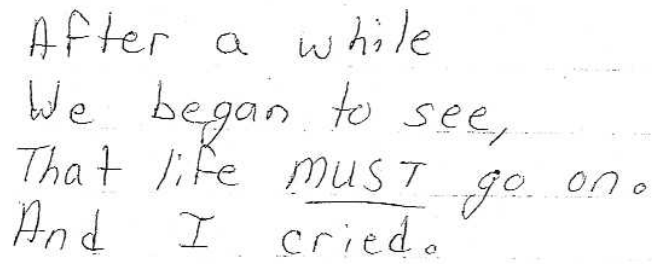 After a while
We began to see,
That life MUST go on.
And I cried.